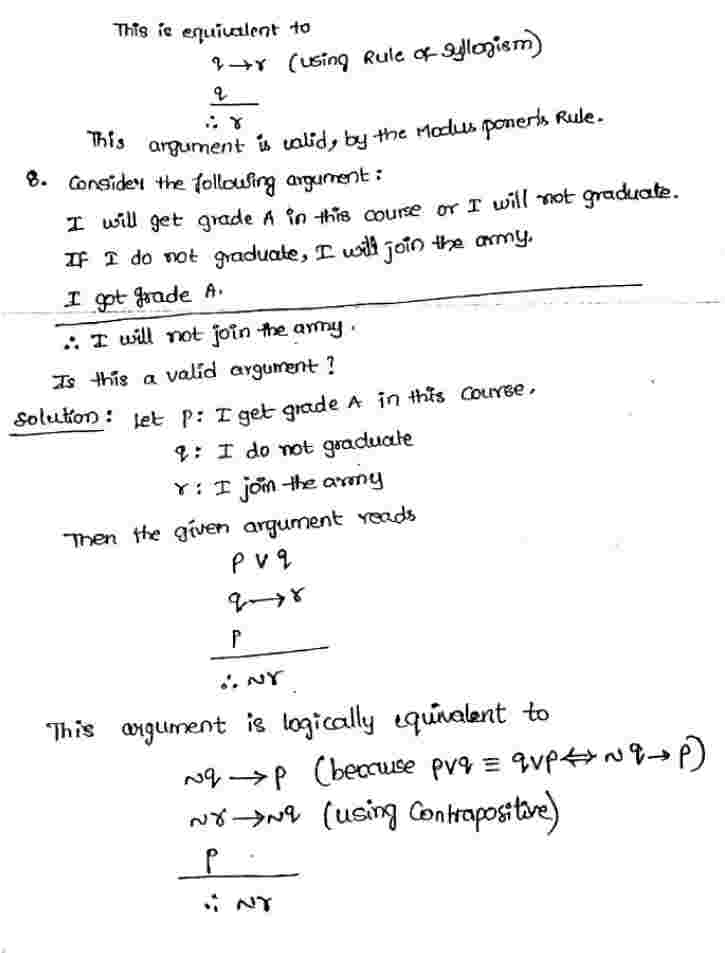 This is equivalent to
q → r (using Rule of Syllogism)
q
∴ r
This argument is valid, by the Modus ponen's Rule.
8. Consider the following argument:
I will get grade A in this course or I will not graduate.
If I do not graduate, I will join the army.
I got grade A.
∴ I will not join the army.
Is this a valid argument?
Solution: Let p: I get grade A in this Course.
q: I do not graduate
r: I join the army
Then the given argument reads
p ∨ q
q → r
p
∴ ~r
This argument is logically equivalent to
~q → p (because p∨q ≡ q∨p ⇔ ~q → p)
~r → ~q (using Contrapositive)
p
∴ ~r